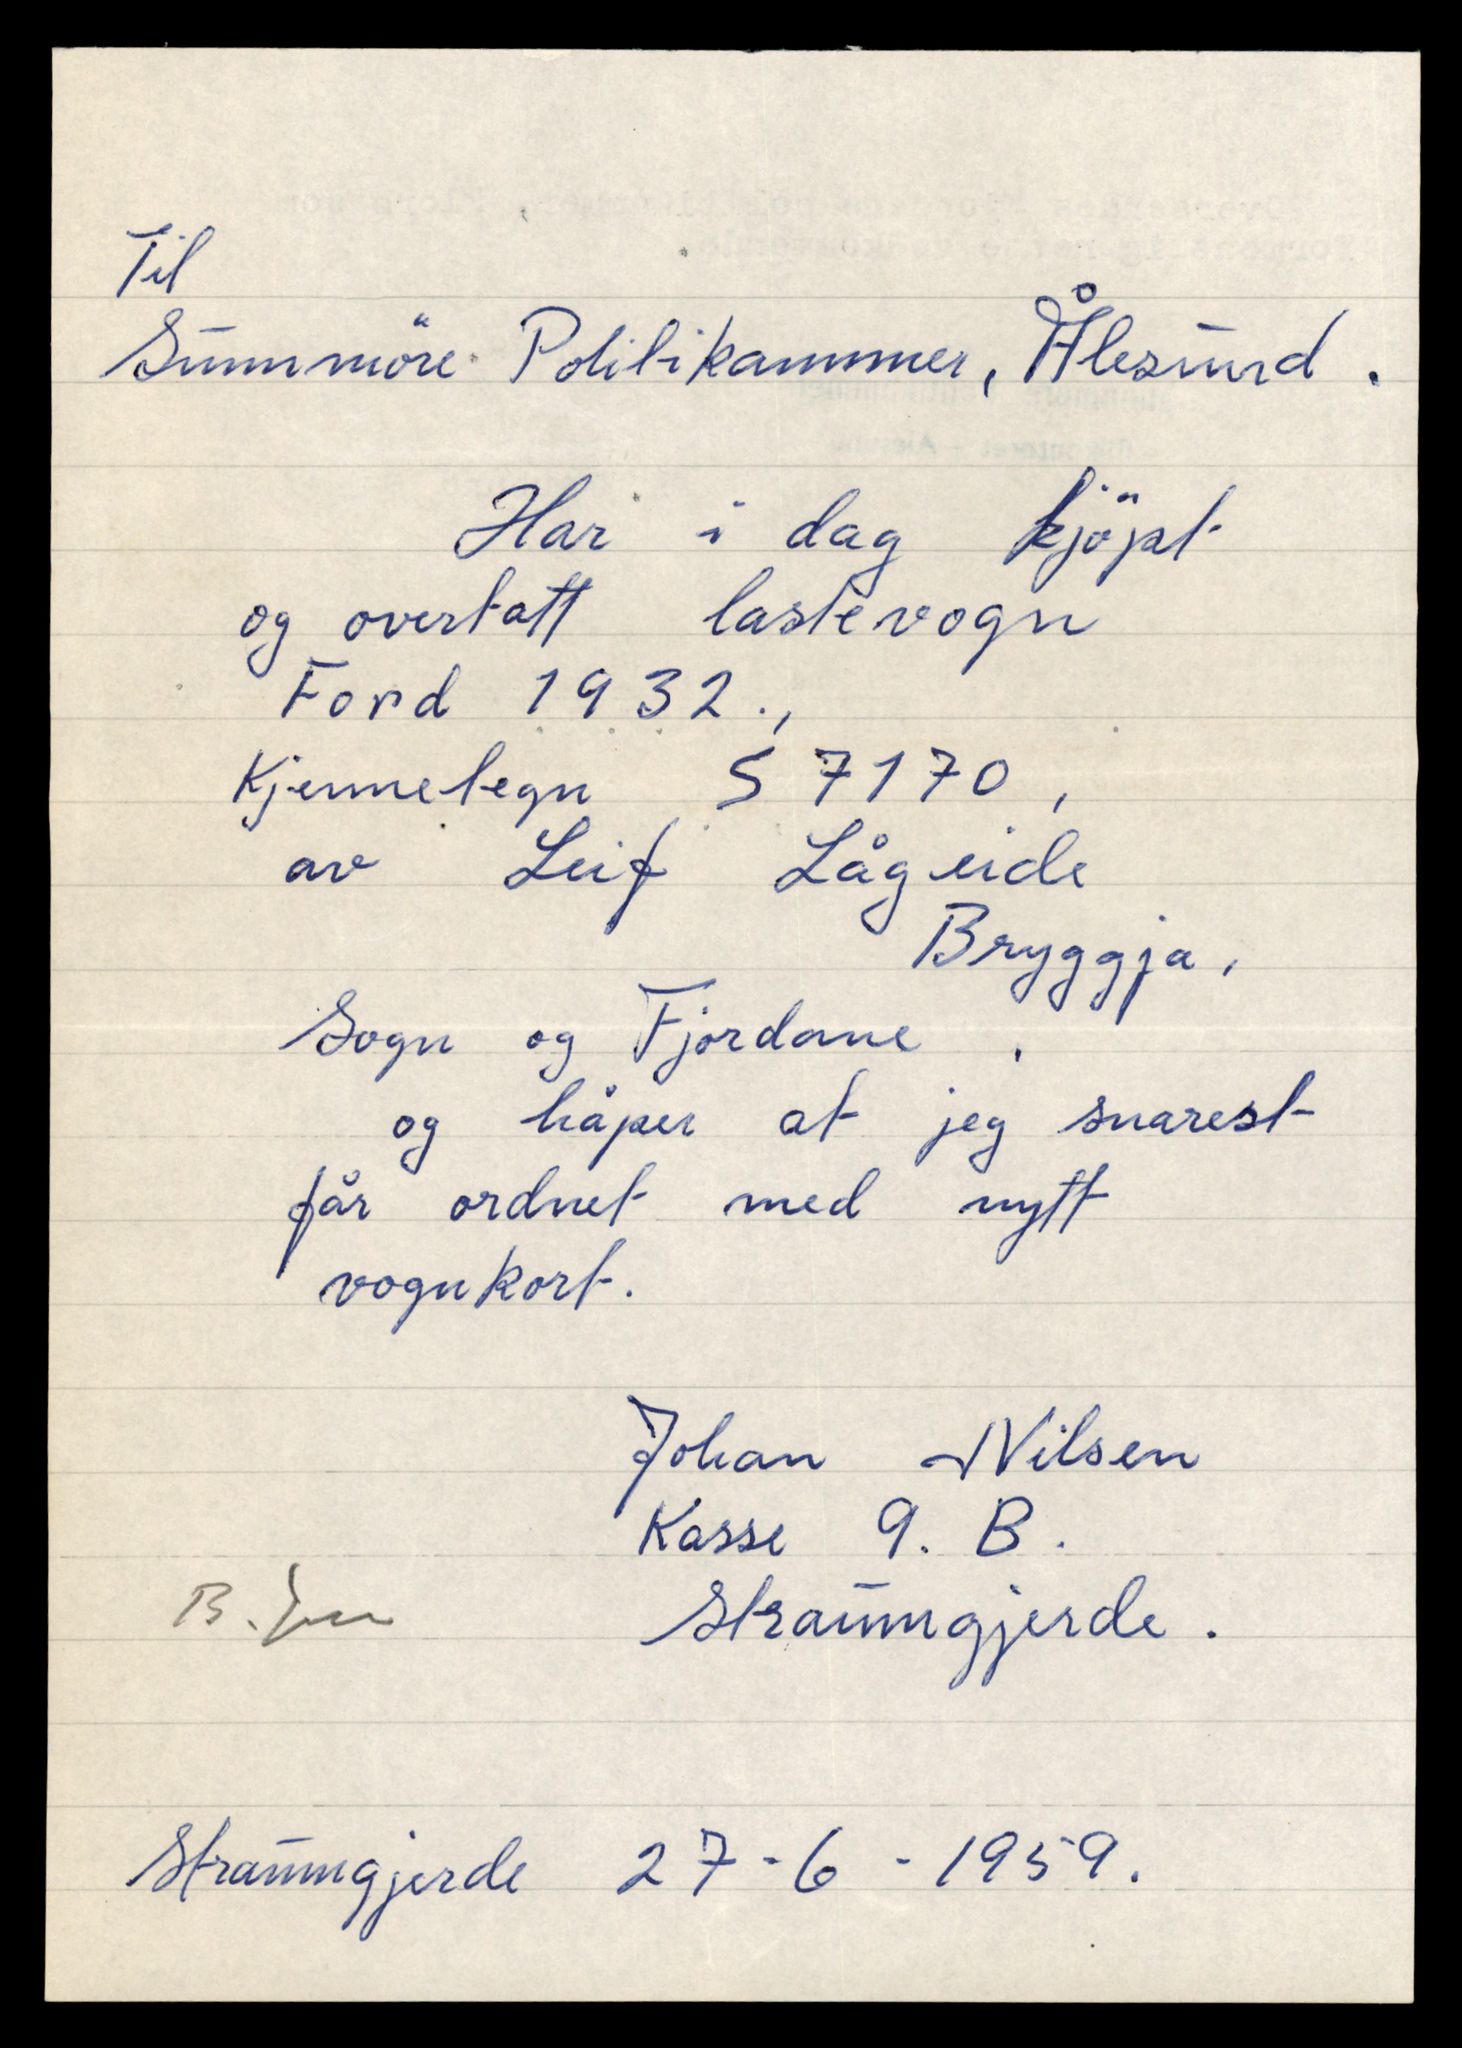 Til
Sunnmöre Politikammer, Ålesund.
Har i dag kjöpt
og overtatt lastevogn
Ford 1932.,
Kjennetegn S 7170,
av Leif Lågeide
Bryggja,
Sogn og Fjordane.
og håper at jeg snarest
får ordnet med nytt
vognkort.
Johan Nilsen
Kasse 9. B.
Straumgjerde.
B.
Straumgjerde 27-6-1959.